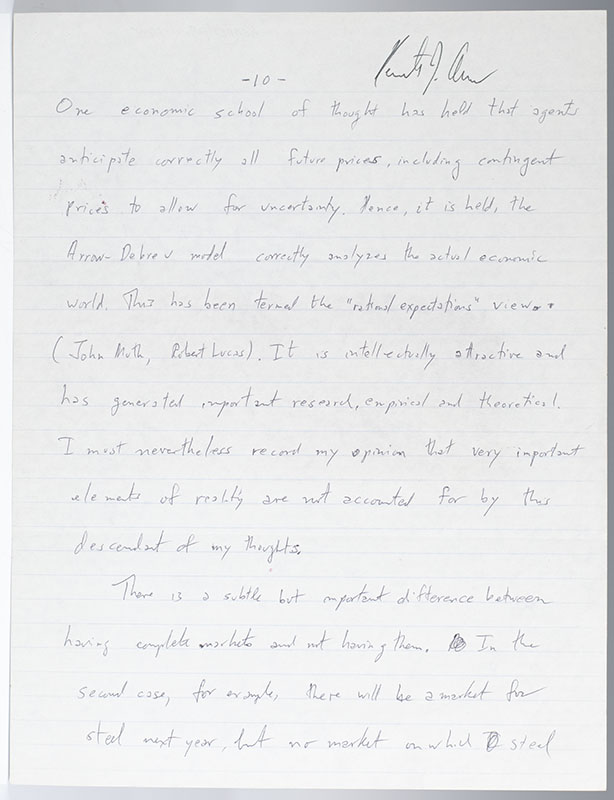 Kenneth J. Arrow
-10-
One economic school of thought has held that agents
anticipate correctly all future prices, including contingent
prices to allow for uncertainty. Hence, it is held, the
Arrow-Debreu model correctly analyzes the actual economic
world. This has been termed the "rational expectations" view.
(John Muth, Robert Lucas). It is intellectually attractive and
has generated important research, empirical and theoretical.
I must nevertheless record my opinion that very important
elements of reality are not accounted for by this
descendant of my thoughts.
There is a subtle but important difference between
having complete markets and not having them. In the
second case, for example, there will be a market for
steel next year, but no market on which steel